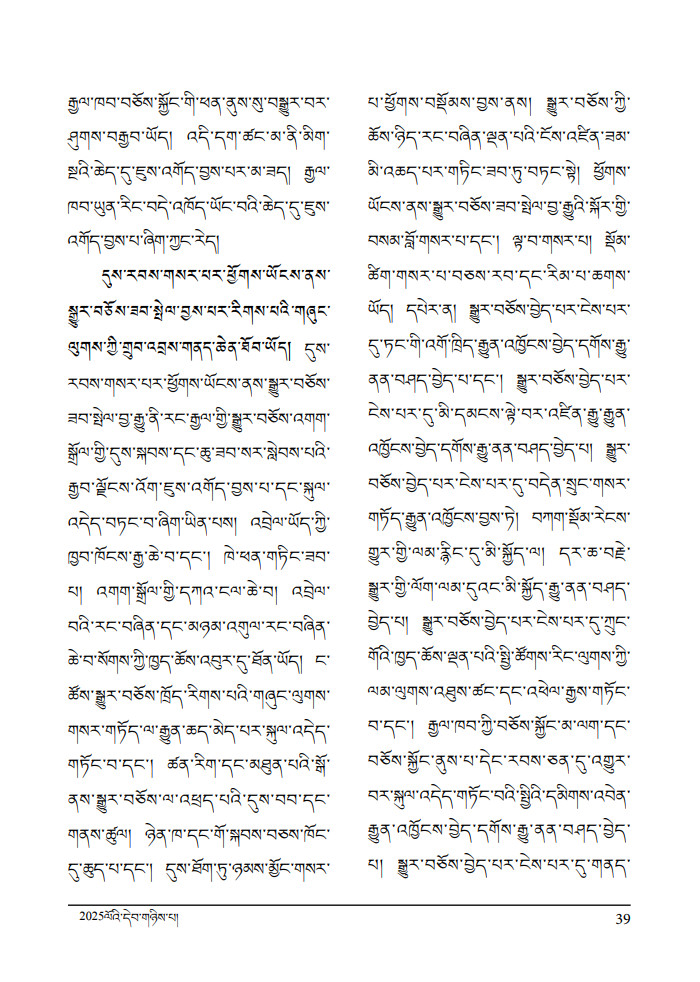 རྒྱལ་ཁབ་བཅོས་སྐྱོང་གི་ཕན་ནུས་སུ་བསྒྱུར་བར་
ཤུགས་བརྒྱབ་ཡོད། འདི་དག་ཚང་མ་ནི་མིག་
སྔའི་ཆེད་དུ་ཇུས་འགོད་བྱས་པར་མ་ཟད། རྒྱལ་
ཁབ་ཡུན་རིང་བདེ་འཁོད་ཡོང་བའི་ཆེད་དུ་ཇུས་
འགོད་བྱས་པ་ཞིག་ཀྱང་རེད།
དུས་རབས་གསར་པར་ཕྱོགས་ཡོངས་ནས་
སྒྱུར་བཅོས་ཟབ་སྤེལ་བྱས་པར་རིགས་པའི་གཞུང་
ལུགས་ཀྱི་གྲུབ་འབྲས་གནད་ཆེན་ཐོབ་ཡོད། དུས་
རབས་གསར་པར་ཕྱོགས་ཡོངས་ནས་སྒྱུར་བཅོས་
ཟབ་སྤེལ་བྱ་རྒྱུ་ནི་རང་རྒྱལ་གྱི་སྒྱུར་བཅོས་འགག་
སྒྲོལ་གྱི་དུས་སྐབས་དང་ཆུ་ཟབ་སར་སླེབས་པའི་
རྒྱབ་ལྗོངས་འོག་ཇུས་འགོད་བྱས་པ་དང་སྐུལ་
འདེད་བཏང་བ་ཞིག་ཡིན་པས། འབྲེལ་ཡོད་ཀྱི་
ཁྱབ་ཁོངས་རྒྱ་ཆེ་བ་དང་། ཁེ་ཕན་གཏིང་ཟབ་
པ། འགག་སྒྲོལ་གྱི་དཀའ་ངལ་ཆེ་བ། འབྲེལ་
བའི་རང་བཞིན་དང་མཉམ་འགུལ་རང་བཞིན་
ཆེ་བ་སོགས་ཀྱི་ཁྱད་ཆོས་འབུར་དུ་ཐོན་ཡོད། ང་
ཚོས་སྒྱུར་བཅོས་ཁྲོད་རིགས་པའི་གཞུང་ལུགས་
གསར་གཏོད་ལ་རྒྱུན་ཆད་མེད་པར་སྐུལ་འདེད་
གཏོང་བ་དང་། ཚན་རིག་དང་མཐུན་པའི་སྒོ་
ནས་སྒྱུར་བཅོས་ལ་འཕྲད་པའི་དུས་བབ་དང་
གནས་ཚུལ། ཉེན་ཁ་དང་གོ་སྐབས་བཅས་ཁོང་
དུ་ཆུད་པ་དང་། དུས་ཐོག་ཏུ་ཉམས་མྱོང་གསར་
པ་ཕྱོགས་བསྡོམས་བྱས་ནས། སྒྱུར་བཅོས་ཀྱི་
ཆོས་ཉིད་རང་བཞིན་ལྡན་པའི་ངོས་འཛིན་ཟམ་
མི་འཆད་པར་གཏིང་ཟབ་ཏུ་བཏང་སྟེ། ཕྱོགས་
ཡོངས་ནས་སྒྱུར་བཅོས་ཟབ་སྤེལ་བྱ་རྒྱུའི་སྐོར་གྱི་
བསམ་བློ་གསར་པ་དང་། ལྟ་བ་གསར་པ། སྡོམ་
ཚིག་གསར་པ་བཅས་རབ་དང་རིམ་པ་ཆགས་
ཡོད། དཔེར་ན། སྒྱུར་བཅོས་བྱེད་པར་ངེས་པར་
དུ་ཏང་གི་འགོ་ཁྲིད་རྒྱུན་འཁྱོངས་བྱེད་དགོས་རྒྱུ་
ནན་བཤད་བྱེད་པ་དང་། སྒྱུར་བཅོས་བྱེད་པར་
ངེས་པར་དུ་མི་དམངས་ལྟེ་བར་འཛིན་རྒྱུ་རྒྱུན་
འཁྱོངས་བྱེད་དགོས་རྒྱུ་ནན་བཤད་བྱེད་པ། སྒྱུར་
བཅོས་བྱེད་པར་ངེས་པར་དུ་བདེན་སྲུང་གསར་
གཏོད་རྒྱུན་འཁྱོངས་བྱས་ཏེ། བཀག་སྡོམ་རེངས་
གྱུར་གྱི་ལམ་རྙིང་དུ་མི་སྐྱོད་ལ། དར་ཆ་བརྗེ་
སྒྱུར་གྱི་ལོག་ལམ་དུའང་མི་སྐྱོད་རྒྱུ་ནན་བཤད་
བྱེད་པ། སྒྱུར་བཅོས་བྱེད་པར་ངེས་པར་དུ་ཀྲུང་
གོའི་ཁྱད་ཆོས་ལྡན་པའི་སྤྱི་ཚོགས་རིང་ལུགས་ཀྱི་
ལམ་ལུགས་འཐུས་ཚང་དང་འཕེལ་རྒྱས་གཏོང་
བ་དང་། རྒྱལ་ཁབ་ཀྱི་བཅོས་སྐྱོང་མ་ལག་དང་
བཅོས་སྐྱོང་ནུས་པ་དེང་རབས་ཅན་དུ་འགྱུར་
བར་སྐུལ་འདེད་གཏོང་བའི་སྤྱིའི་དམིགས་འབེན་
རྒྱུན་འཁྱོངས་བྱེད་དགོས་རྒྱུ་ནན་བཤད་བྱེད་
པ། སྒྱུར་བཅོས་བྱེད་པར་ངེས་པར་དུ་གནད་
2025ལོའི་དེབ་གཉིས་པ།
39